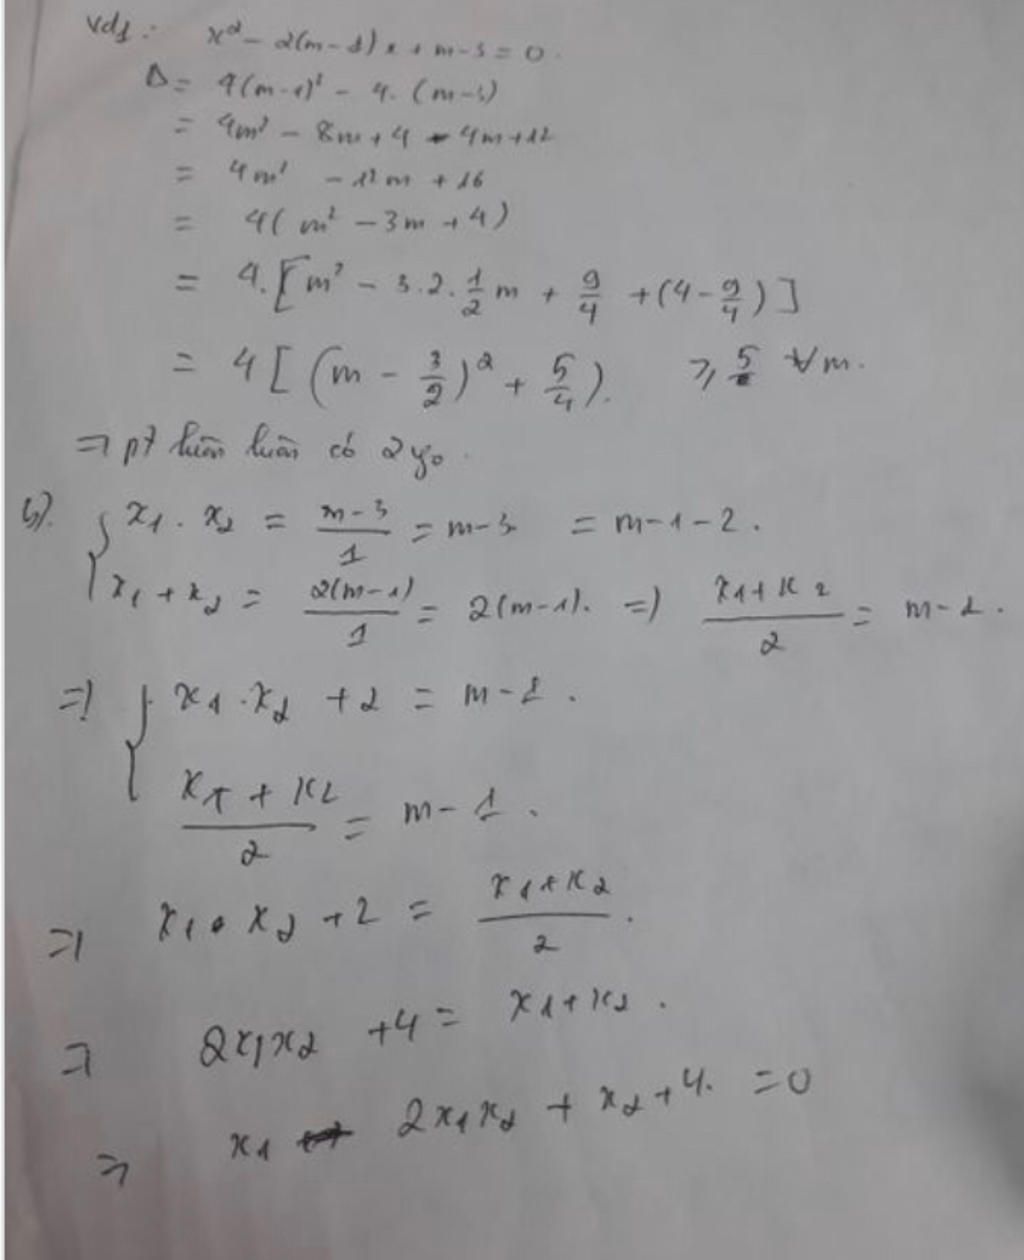 Vd1: x² - 2(m-1)x + m-3 = 0.
Δ = 4(m-1)² - 4.(m-3)
= 4m² - 8m + 4 - 4m + 12
= 4m² - 12m + 16
= 4(m² - 3m + 4)
= 4.[m² - 3.2.1/2 m + 9/4 + (4 - 9/4)]
= 4[(m - 3/2)² + 5/4). ≥ 5 ∀m.
⇒ pt luôn luôn có 2 no.
b). { x1 . x2 = (m-3)/1 = m-3 = m-1-2.
x1 + x2 = 2(m-1)/1 = 2(m-1). ⇒ (x1 + x2)/2 = m-1.
⇒ { x1 . x2 + 2 = m-1.
(x1 + x2)/2 = m-1.
⇒ x1 . x2 + 2 = (x1 + x2)/2.
⇒ 2x1x2 + 4 = x1 + x2.
⇒ x1 2x1x2 + x2 + 4. = 0